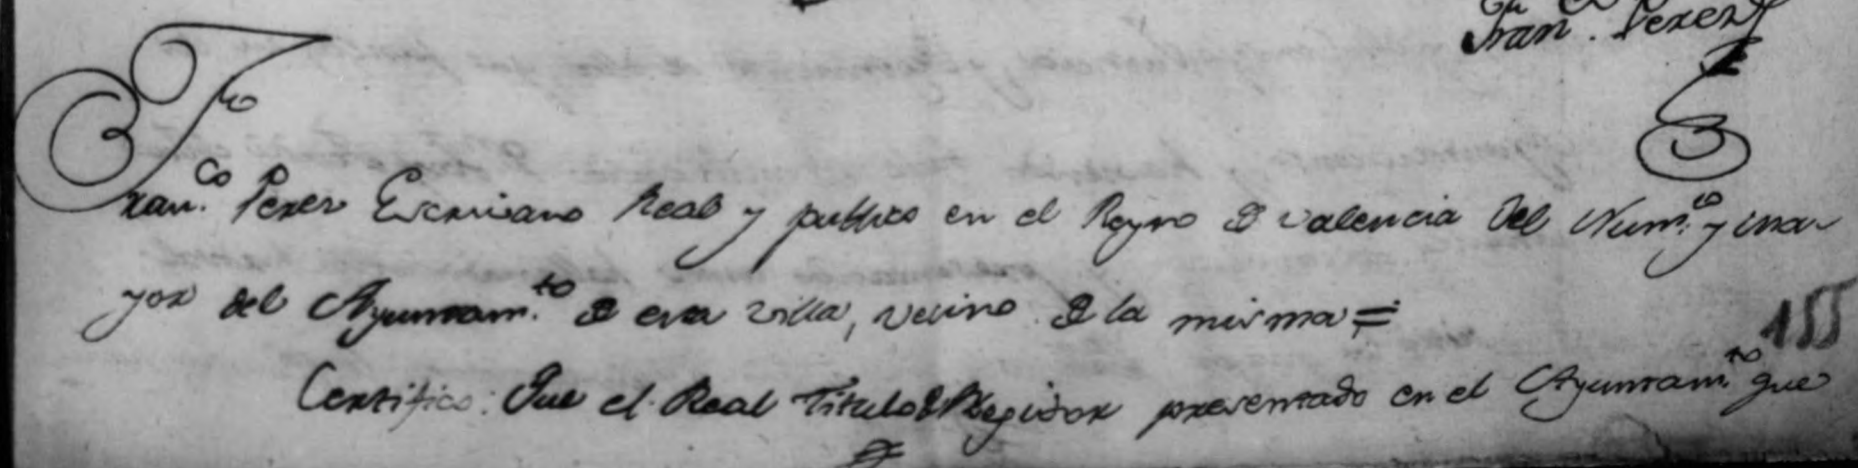 Fran.co Perez
Fran.co Perez Escrivano Real y publico en el Reyno de Valencia del Num.o y ma-
yor del Ayuntam.to de esta villa, vecino de la misma =
155
Certifico: Que el Real Titulo de Regidor presentado en el Ayuntam.to que